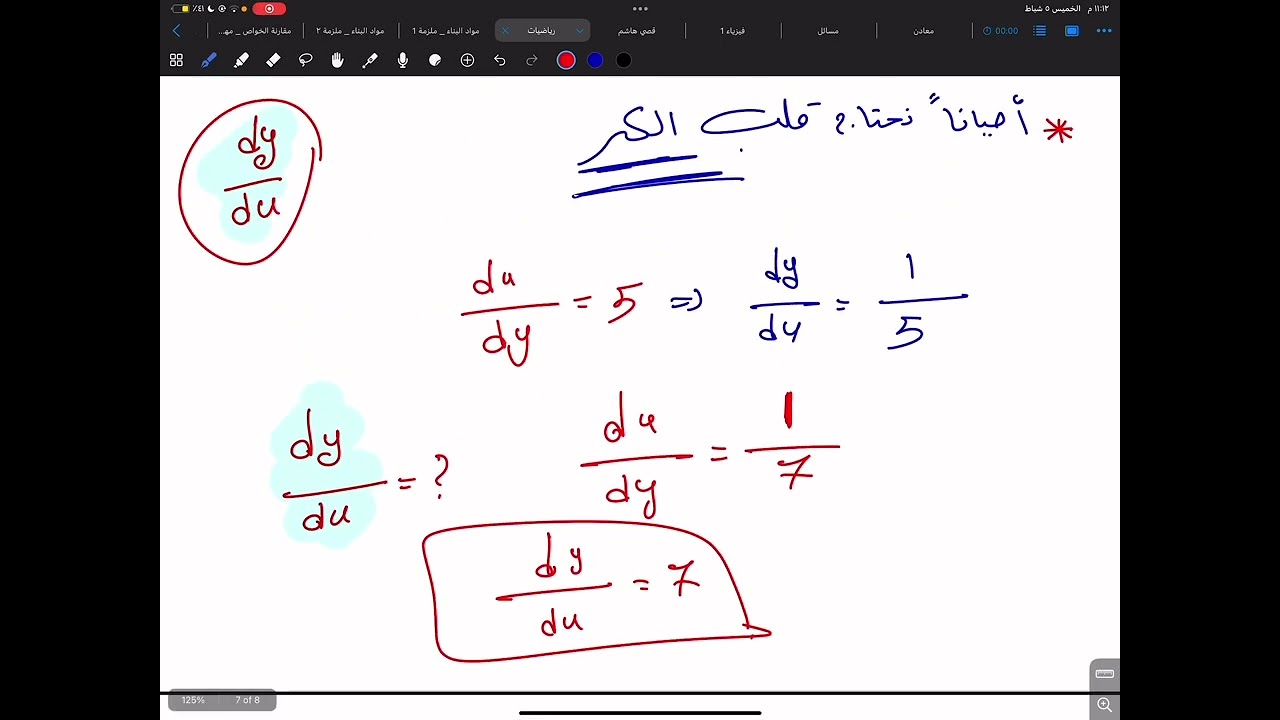 ١١:١٣ م الخميس ٥ شباط
٪٤١
مقارنة الخواص _ مه...
مواد البناء _ ملزمة ٢
مواد البناء _ ملزمة 1
رياضيات
قصي هاشم
فيزياء 1
مسائل
معادن
00:00
* أحياناً نحتاج قلب الكسر
dy/du
du/dy = 5 ⇒ dy/du = 1/5
dy/du = ?
du/dy = 1/7
dy/du = 7
125%
7 of 8